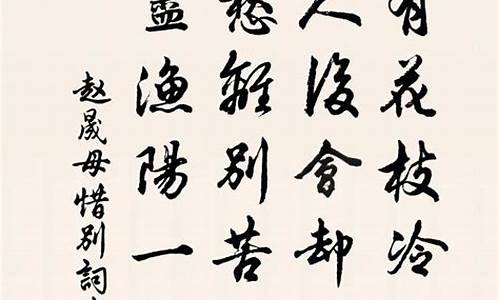 有花枝冷
人後會却
愁離別苦
盡漁陽一
赵晟母惜別詞